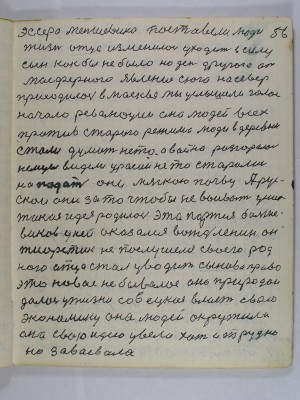 эссера меншевика поставели люди 56
жизн отца изменилог уходит в силу
сын как бы не было но ден другого от
маифернаго явление скога на север
приходилог в москве мы услышали
начало революции она людей всех
против старого режима люди в деревни
стали думат нето а война
немцы видели уросий не то старались
на падат они мяхкою почву
ской они за то чтобы не воиват
такия идея родилог эта партия больше
виков у ней оказался вождь ленин он
тиоретик не послушели своего род
ного отца стал уводит сынове право
это новое небывалое оно природои
далог ужизни собсукое власт свою
экономику она людей окружила
она свою идею увела хот и трудно
но завоевала